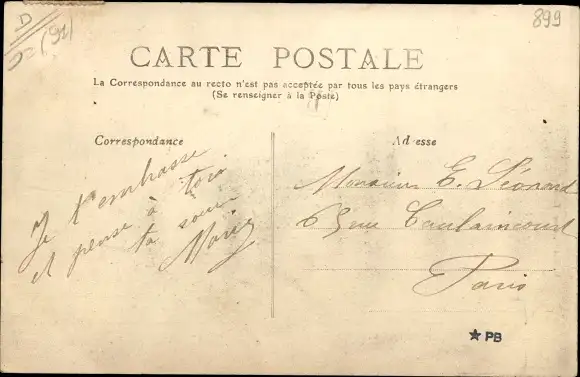 D
(91)
899
CARTE POSTALE
La Correspondance au recto n'est pas acceptée par tous les pays étrangers
(Se renseigner à la Poste)
Correspondance
Je t'embrasse
et pense à toi.
ta sœur
Adresse
Monsieur E. Léonard
63 rue Caulaincourt
Paris
★ PB